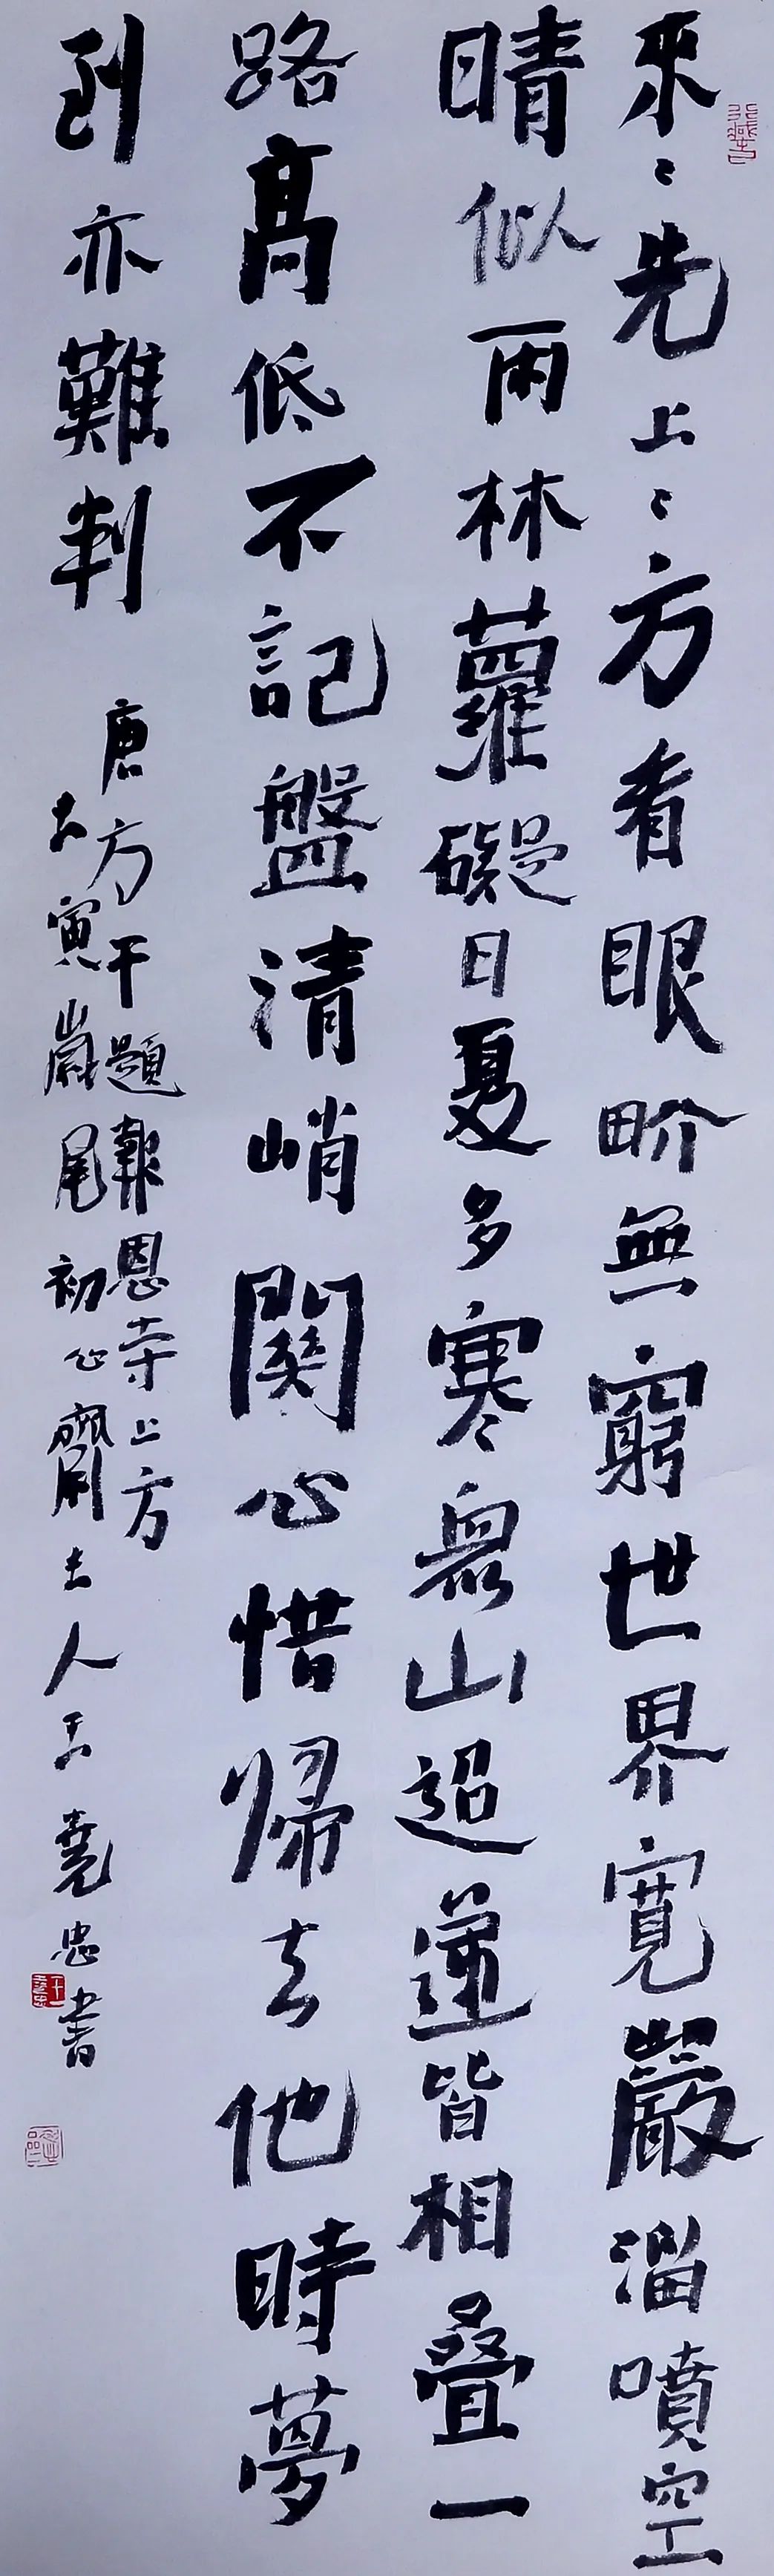 来〻先上〻方看眼界無窮世界寬巖溜噴空
晴似雨林蘿礙日夏多寒衆山迢遞皆相疊一
路高低不記盤清峭關心惜歸去他時夢
到亦難判
唐方干題報恩寺上方
壬寅歲尾初心齋主人王堯忠書